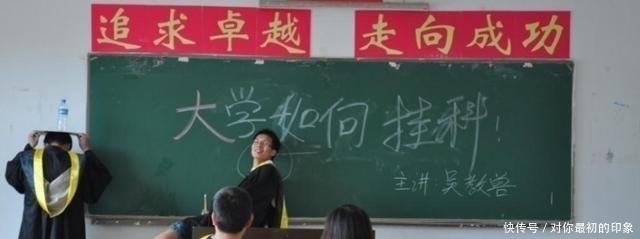 追求卓越 走向成功
大学如何挂科!
主讲:吴教兽
快传号/对你最初的印象